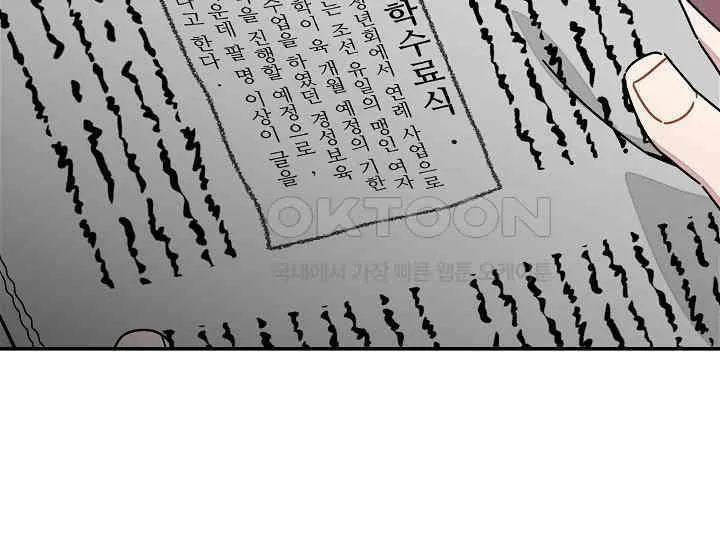 학수료식 .
년회에서 연례 사업으로
는 조선 유일의 맹인 여자
학이 육 개월 예정의 기한
수업을 하였던 경성보육
을 진행할 예정으로,
운데 팔 명 이상이 글을
다고 한다.
OKTOON
국내에서 가장 빠른 웹툰 오케이툰